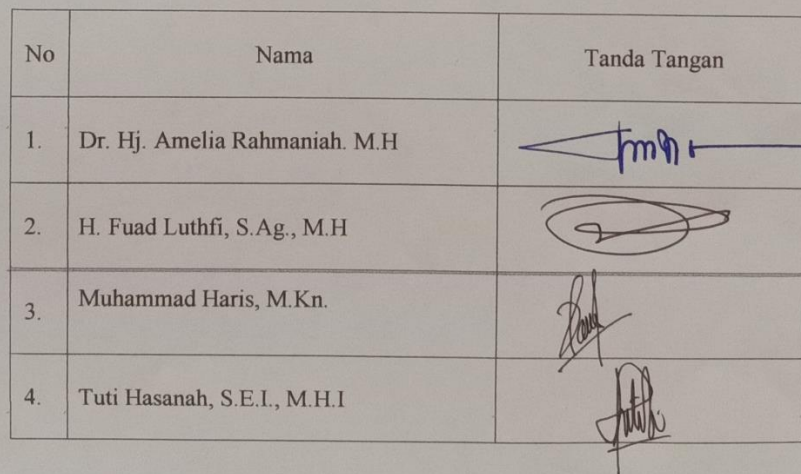 No Nama Tanda Tangan
1. Dr. Hj. Amelia Rahmaniah. M.H
2. H. Fuad Luthfi, S.Ag., M.H
3. Muhammad Haris, M.Kn.
4. Tuti Hasanah, S.E.I., M.H.I